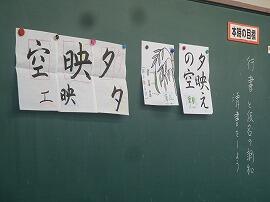 本時の目標
行書と仮名の調和
清書をしよう
夕映え
の空
夕夕
映映
空工